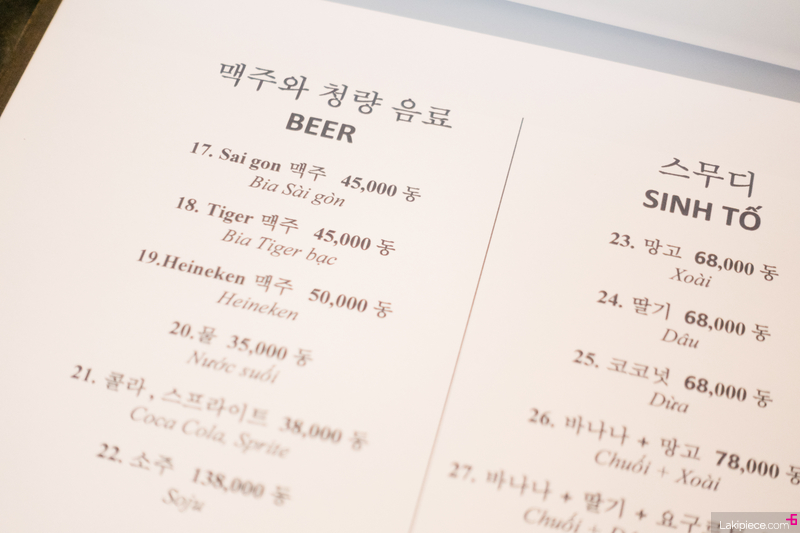 맥주와 청량 음료
BEER
17. Sai gon 맥주 45,000 동
Bia Sài gòn
18. Tiger 맥주 45,000 동
Bia Tiger bạc
19.Heineken 맥주 50,000 동
Heineken
20.물 35,000 동
Nước suối
21. 콜라, 스프라이트 38,000 동
Coca Cola, Sprite
22. 소주 138,000 동
Soju
스무디
SINH TỐ
23. 망고 68,000 동
Xoài
24. 딸기 68,000 동
Dâu
25. 코코넛 68,000 동
Dừa
26. 바나나 + 망고 78,000 동
Chuối + Xoài
27. 바나나 + 딸기 + 요구
Chuối +
Lakipiece.com